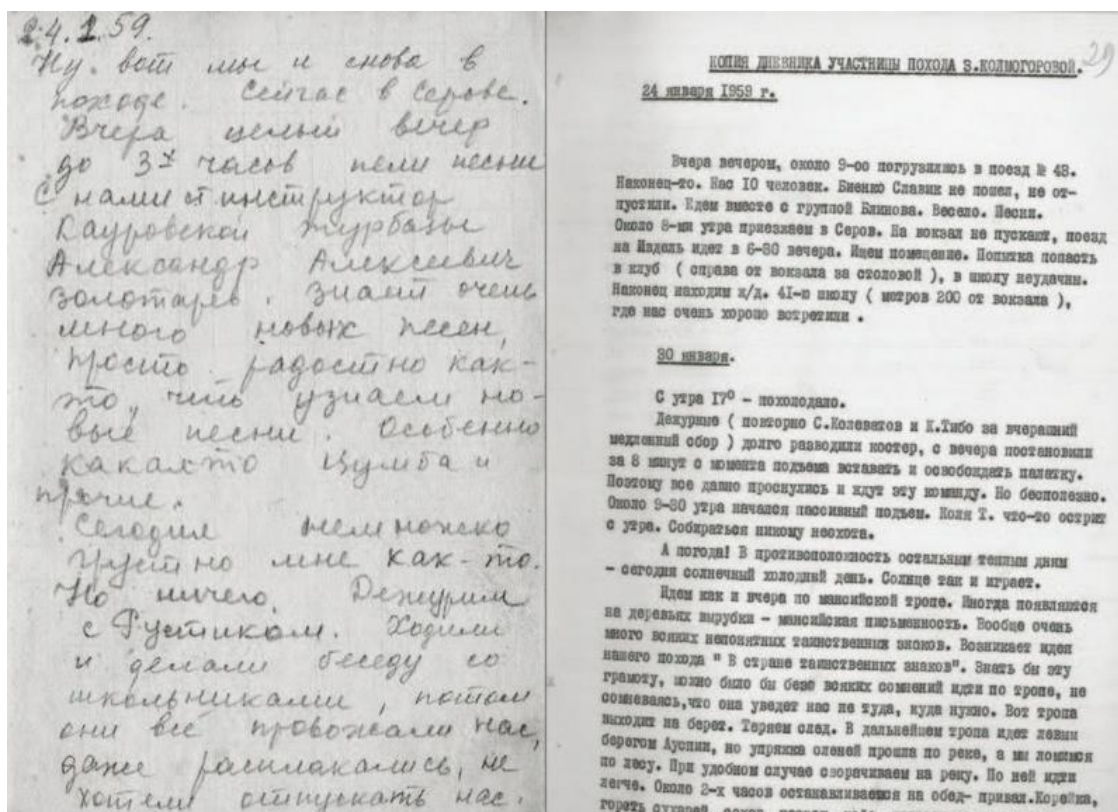 24.1.59.
Ну вот мы и снова в
походе. Сейчас в Серове.
Вчера целый вечер
до 3х часов пели песни
С нами ст инструктор
Кауровской турбазы
Александр Алексеевич
Золотарев. Знает очень
много новых песен,
просто радостно как-
то, что узнаем но-
вые песни. Особенно
какаято Цумба и
прочие.
Сегодня немножко
грустно мне как-то.
Но ничего. Дежурим
с Рустиком. Ходили
и делали беседу со
школьниками, потом
они все провожали нас,
даже расплакались, не
хотели отпускать нас.
29
КОПИЯ ДНЕВНИКА УЧАСТНИЦЫ ПОХОДА З.КОЛМОГОРОВОЙ.
24 января 1959 г.
Вчера вечером, около 9-оо погрузились в поезд № 43.
Наконец-то. Нас 10 человек. Биенко Славик не пошел, не от-
пустили. Едем вместе с группой Блинова. Весело. Песни.
Около 8-ми утра приезжаем в Серов. На вокзал не пускают, поезд
на Ивдель идет в 6-30 вечера. Ищем помещение. Попытка попасть
в клуб ( справа от вокзала за столовой ), в школу неудачны.
Наконец находим ж/д. 41-ю школу ( метров 200 от вокзала ),
где нас очень хорошо встретили .
30 января.
С утра 17⁰ - похолодало.
Дежурные ( повторно С.Колеватов и К.Тибо за вчерашний
медленный сбор ) долго разводили костер, с вечера постановили
за 8 минут с момента подъема вставать и освобождать палатку.
Поэтому все давно проснулись и ждут эту команду. Но бесполезно.
Около 9-30 утра начался пассивный подъем. Коля Т. что-то острит
с утра. Собираться никому неохота.
А погода! В противоположность остальным теплым дням
- сегодня солнечный холодный день. Солнце так и играет.
Идем как и вчера по мансийской тропе. Иногда появляются
на деревьях вырубки - мансийская письменность. Вообще очень
много всяких непонятных таинственных знаков. Возникает идея
нашего похода " В стране таинственных знаков". Знать бы эту
грамоту, можно было бы безо всяких сомнений идти по тропе, не
сомневаясь,что она уведет нас не туда, куда нужно. Вот тропа
выходит на берег. Теряем след. В дальнейшем тропа идет левым
берегом Ауспии, но упряжка оленей прошла по реке, а мы ломимся
по лесу. При удобном случае сворачиваем на реку. По ней идти
легче. Около 2-х часов останавливаемся на обед- привал.Корейка,
горсть сухарей, сахар,